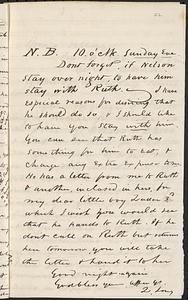 N.B. 10. o'clk Sunday Eve
Dont forget, if Nelson
stay over night, to have him
stay with Ruth. I have
especial reasons for desiring that
he should do so, & I should like
to have you stay with him
You can see that Ruth has
something for him to eat, &
charge any extra expense to me
He has a letter from me to Ruth
& another, inclosed in hers, for
my dear little boy
which I wish you would see
that he hands to Ruth. If he
dont call on Ruth but returns
here tomorrow you will take
the letter & hand it to her
Good night again
God bless you